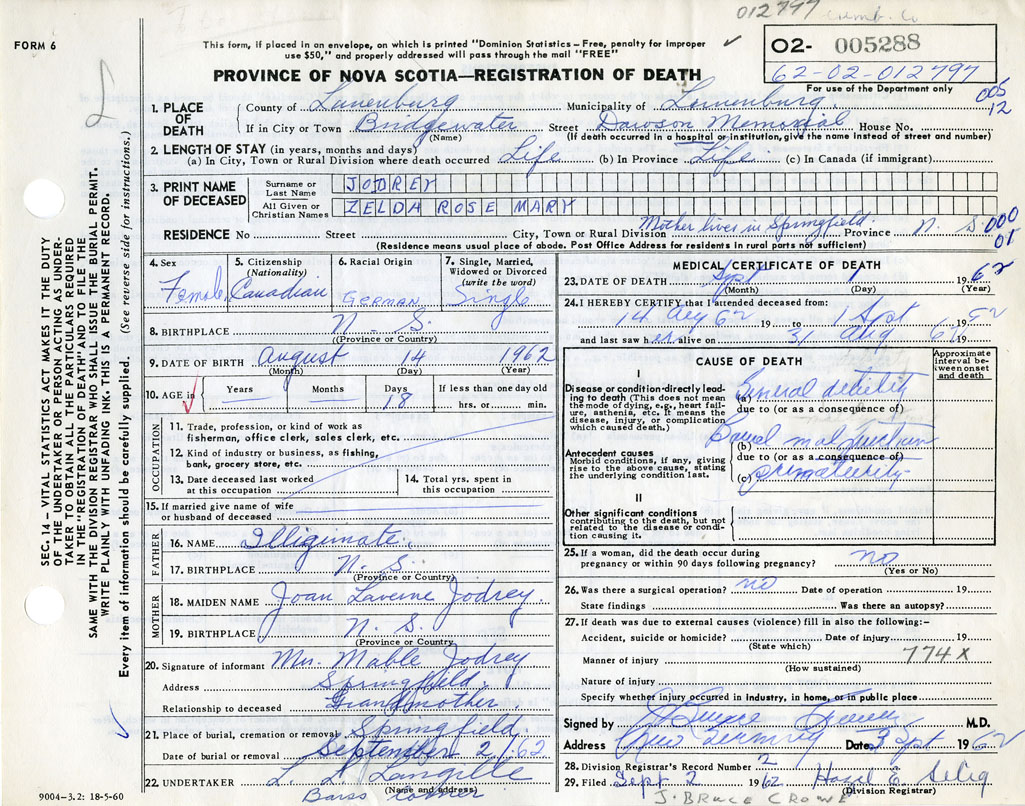 012797 Cumb. Co
FORM 6
This form, if placed in an envelope, on which is printed "Dominion Statistics—Free, penalty for improper
use $50," and properly addressed will pass through the mail "FREE"
PROVINCE OF NOVA SCOTIA—REGISTRATION OF DEATH
02- 005288
62-02-012797
For use of the Department only
005
12
1. PLACE OF DEATH
County of Lunenburg Municipality of Lunenburg
If in City or Town Bridgewater Street Dawson Memorial House No.
(Name) (If death occurred in a hospital or institution, give the name instead of street and number)
2. LENGTH OF STAY (in years, months and days)
(a) In City, Town or Rural Division where death occurred Life (b) In Province Life (c) In Canada (if immigrant)
3. PRINT NAME OF DECEASED
Surname or Last Name JODREY
All Given or Christian Names ZELDA ROSE MARY
Mother lives in Springfield.
RESIDENCE No Street City, Town or Rural Division Province N. S.
000
01
(Residence means usual place of abode. Post Office Address for residents in rural parts not sufficient)
4. Sex Female
5. Citizenship (Nationality) Canadian
6. Racial Origin GERMAN
7. Single, Married, Widowed or Divorced (write the word) Single
8. BIRTHPLACE N. S.
(Province or Country)
9. DATE OF BIRTH August 14 1962
(Month) (Day) (Year)
10. AGE in Years Months Days 18 If less than one day old hrs. or min.
OCCUPATION
11. Trade, profession, or kind of work as
fisherman, office clerk, sales clerk, etc.
12. Kind of industry or business, as fishing,
bank, grocery store, etc.
13. Date deceased last worked at this occupation
14. Total yrs. spent in this occupation
15. If married give name of wife
or husband of deceased
FATHER
16. NAME Illigimate.
17. BIRTHPLACE N. S.
(Province or Country)
MOTHER
18. MAIDEN NAME Joan Laverne Jodrey.
19. BIRTHPLACE N. S.
(Province or Country
20. Signature of informant Mrs. Mable Jodrey
Address Springfield.
Relationship to deceased Grandmother
21. Place of burial, cremation or removal Springfield.
Date of burial or removal September 2/62
22. UNDERTAKER L. L. Langille
(Name and address)
Barss Corner
9004-3.2: 18-5-60
MEDICAL CERTIFICATE OF DEATH
23. DATE OF DEATH Sept 1 1962
(Month) (Day) (Year)
24. I HEREBY CERTIFY that I attended deceased from:
14 Aug 62 19 to 1 Sept 1962
and last saw her alive on 31 Aug 62 19
CAUSE OF DEATH
Approximate interval between onset and death
I
Disease or condition directly leading to death (This does not mean the mode of dying, e.g., heart failure, asthenia, etc. It means the disease, injury, or complication which caused death.)
(a) General debility
due to (or as a consequence of)
Antecedent causes
Morbid conditions, if any, giving rise to the above cause, stating the underlying condition last.
(b) Bowel malfunction
due to (or as a consequence of)
(c) prematurity
II
Other significant conditions
contributing to the death, but not related to the disease or condition causing it.
25. If a woman, did the death occur during
pregnancy or within 90 days following pregnancy? no
(Yes or No)
26. Was there a surgical operation? no Date of operation 19
State findings Was there an autopsy?
27. If death was due to external causes (violence) fill in also the following:-
Accident, suicide or homicide? Date of injury 19
(State which)
Manner of injury 774 X
(How sustained)
Nature of injury
Specify whether injury occurred in industry, in home, or in public place
Signed by J Bruce Crowe M.D.
Address New Germany Date 3 Sept 1962
28. Division Registrar's Record Number 2
29. Filed Sept 2 1962 Hazel E. Selig
(Division Registrar)
J. BRUCE CROWE
SEC. 14—VITAL STATISTICS ACT MAKES IT THE DUTY
OF THE UNDERTAKER OR PERSON ACTING AS UNDER-
TAKER TO OBTAIN ALL THE PARTICULARS REQUIRED
IN THE "REGISTRATION OF DEATH" AND TO FILE THE
SAME WITH THE DIVISION REGISTRAR WHO SHALL ISSUE THE BURIAL PERMIT.
WRITE PLAINLY WITH UNFADING INK. THIS IS A PERMANENT RECORD.
Every item of information should be carefully supplied. (See reverse side for instructions.)